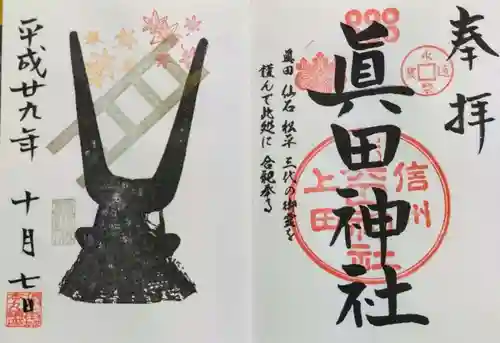 奉拝
眞田神社
信州
上田
眞田 仙石 松平 三代の御霊を
謹んで此処に 合祀奉る
平成廿九年 十月 七日